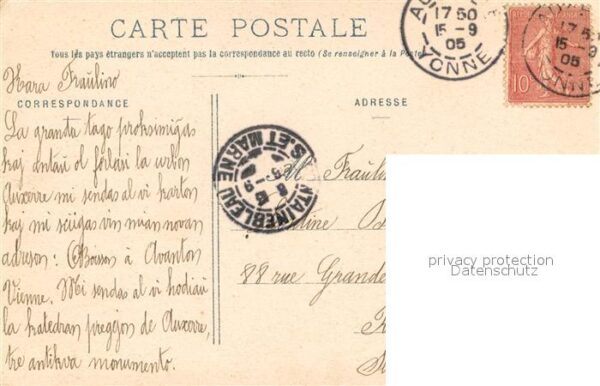 CARTE POSTALE
Tous les pays étrangers n'acceptent pas la correspondance au recto (Se renseigner à la Poste)
CORRESPONDANCE
ADRESSE
Kara Fraŭlino
La granda tago proksimiĝas
kaj antaŭ ol forlasi la urbon
Auxerre mi sendas al vi karton
kaj mi sciigas vin mian novan
adreson: Boisson à Avanton
Vienne. Mi sendas al vi hodiaŭ
la katedran preĝejon de Auxerre,
tre antikva monumento.
17 50
15 - 9
05
YONNE
17 50
15 - 9
05
YONNE
10
FONTAINEBLEAU
S. ET MARNE
Fraŭlin
88 rue Grande
privacy protection
Datenschutz